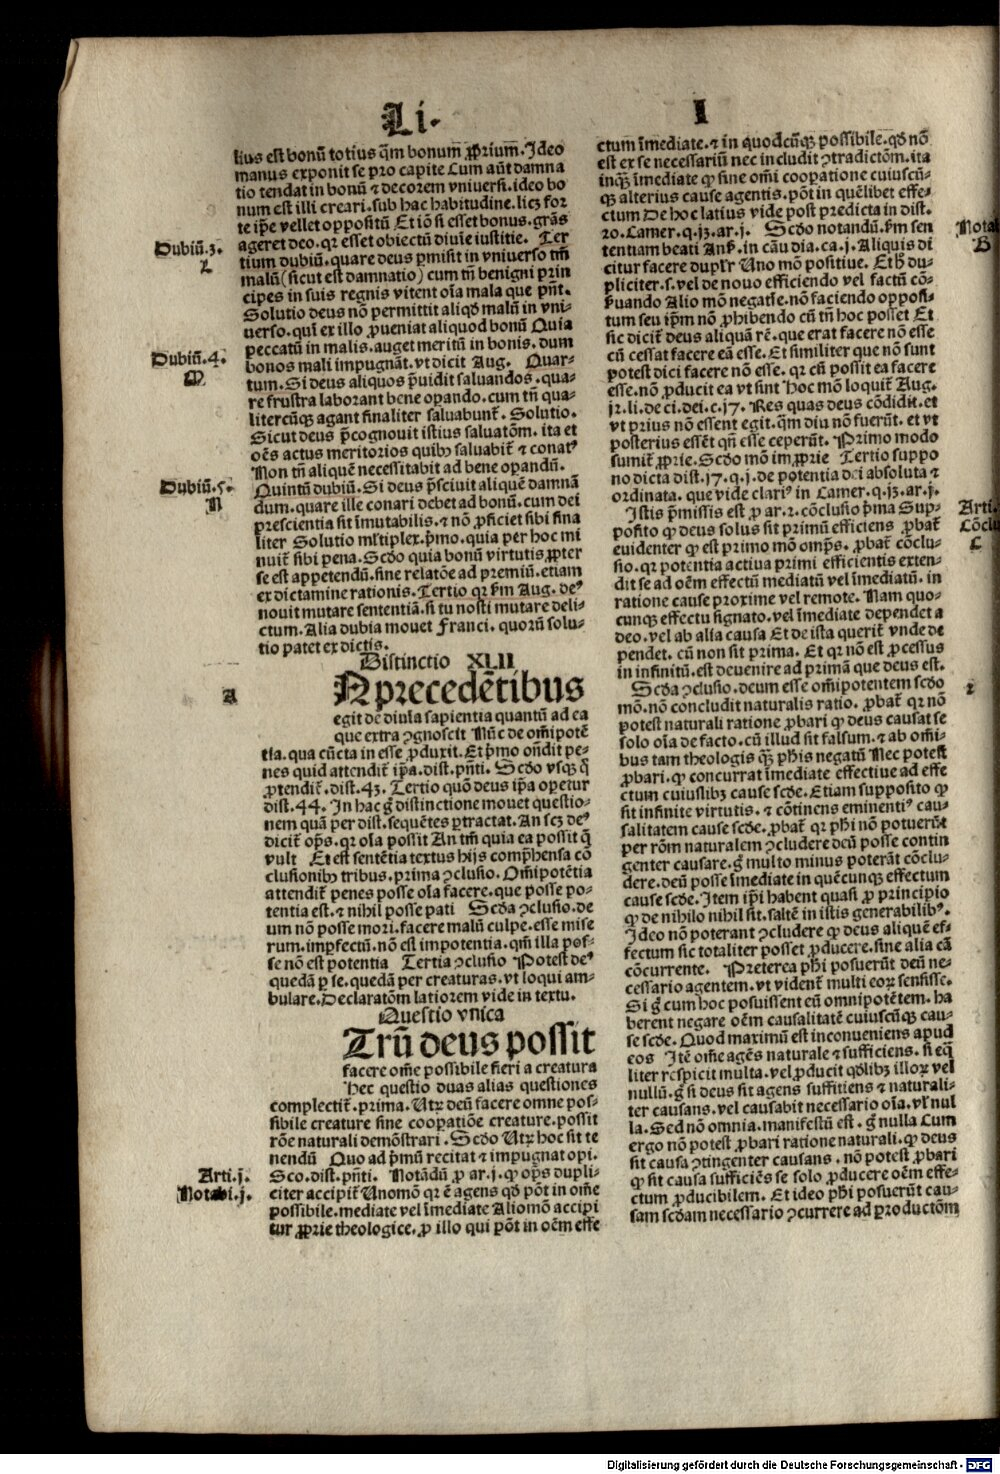 Li.
I
lius est bonū totius q̄m bonum ꝓprium. Ideo
manus exponit se pro capite Cum aūt damna
tio tendat in bonū ⁊ decorem vniuersi. ideo bo
num est illi creari. sub hac habitudine. licꝫ for
te ip̄e vellet oppositū Et iō si esset bonus. grās
ageret deo. qꝛ esset obiectū diuīe iustitie. Ter
tium dubiū. quare deus ꝑmisit in vniuerso tm̄
malū (sicut est damnatio) cum tn̄ benigni prin
cipes in suis regnis vitent oīa mala que pn̄t.
Solutio deus nō permittit aliqd̄ malū in vni-
uerso. qui ex illo ꝓueniat aliquod bonū Quia
peccatū in malis. auget meritū in bonis. dum
bonos mali impugnāt. vt dicit Aug. Quar-
tum. Si deus aliquos p̄uidit saluandos. qua-
re frustra laborant bene oꝑando. cum tn̄ qua-
litercūqꝫ agant finaliter saluabunt̄. Solutio.
Sicut deus p̄cognouit istius saluatōm. ita et
oēs actus meritorios quibꝫ saluabit̄ ⁊ conatꝰ
Non tn̄ aliquē necessitabit ad bene oꝑandū.
Quintū dubiū. Si deus p̄sciuit aliquē damnā
dum. quare ille conari debet ad bonū. cum dei
prescientia sit īmutabilis. ⁊ nō ꝓficiet sibi fina
liter Solutio mltiplex. p̄mo. quia per hoc mi
nuit̄ sibi pena. Scd̄o quia bonū virtutis ꝓpter
se est appetendū. sine relatōe ad premiū. etiam
ex dictamine rationis. Tertio qꝛ fm̄ Aug. deꝰ
nouit mutare sententiā. si tu nosti mutare deli-
ctum. Alia dubia mouet Franci. quorū solu-
tio patet ex dictis.
Distinctio XLII
N precedētibus
egit de diuīa sapientia quantū ad ea
que extra ꝯgnoscit Nūc de om̄ipotē
tia. qua cūcta in esse ꝓduxit. Et p̄mo on̄dit pe-
nes quid attendit̄ ip̄a. dist. pn̄ti. Scd̄o vsqꝫ q̄
ꝓtendit̄. dist. 43. Tertio quō deus ip̄a oꝑetur
dist. 44. In hac ḡ distinctione mouet questio-
nem quā per dist. sequētes ꝑtractat. An scꝫ deꝰ
dicit̄ op̄s. qꝛ oīa possit An tm̄ quia ea possit q̄
vult Et est sentētia textus hijs comp̄hensa cō
clusionibꝫ tribus. prima ꝯclusio. Om̄ipotētia
attendit̄ penes posse oīa facere. que posse po-
tentia est. ⁊ nihil posse pati Scd̄a ꝯclusio. de
um nō posse mori. facere malū culpe. esse mise
rum. imꝑfectū. nō est impotentia. qm̄ illa pos-
se nō est potentia Tertia ꝯclusio Potest deꝰ
quedā ꝑ se. quedā per creaturas. vt loqui am-
bulare. Declaratōm latiorem vide in textu.
Questio vnica
Trū deus possit
facere om̄e possibile fieri a creatura
Hec questio duas alias questiones
complectit̄. prima. Utꝝ deū facere omne pos-
sibile creature sine cooꝑatiōe creature. possit
rōe naturali demōstrari. Scd̄o Utꝝ hoc sit te
nendū Quo ad p̄mū recitat ⁊ impugnat opi.
Sco. dist. pn̄ti. Notādū ꝓ ar. j. ꝙ op̄s dupli-
citer accipit̄ Uno mō qꝛ ē agens qd̄ pōt in om̄e
possibile. mediate vel īmediate Alio mō accipi
tur ꝓprie theologice. ꝓ illo qui pōt in oēm effe
ctum īmediate. ⁊ in quodcūqꝫ possibile. qd̄ nō
est ex se necessariū nec includit ꝯtradictōm. ita
inqꝫ īmediate ꝙ sine om̄i cooꝑatione cuiuscū-
qꝫ alterius cause agentis. pōt in quēlibet effe-
ctum De hoc latius vide post predicta in dist.
20. Camer. q. 13. ar. j. Scd̄o notandū. fm̄ sen
tentiam beati Anß. in cāu dia. ca. j. Aliquis di
citur facere dupłr Uno mō positiue. Et h̄ du-
pliciter. s. vel de nouo efficiendo vel factū cō-
ẜuando Alio mō negatīe. nō faciendo opposi-
tum seu ip̄m nō ꝓhibendo cū tn̄ hoc posset Et
sic dicit̄ deus aliquā rē. que erat facere nō esse
cū cessat facere eā esse. Et similiter que nō sunt
potest dici facere nō esse. qꝛ cū possit ea facere
esse. nō ꝓducit ea vt sint Hoc mō loquit̄ Aug.
12. li. de ci. dei. c. 17. Res quas deus cōdidit. et
vt prius nō essent egit. q̄m diu nō fuerūt. et vt
posterius essēt qn̄ esse ceperūt. Primo modo
sumit̄ ꝓprie. Scd̄o mō imꝓprie Tertio suppo
no dicta dist. 17. q. j. de potentia dei absoluta ⁊
ordinata. que vide clariꝰ in Camer. q. 13. ar. j.
Istis p̄missis est ꝓ ar. 2. cōclusio p̄ma Sup-
posito ꝙ deus solus sit primū efficiens ꝓbat̄
euidenter ꝙ est primo mō omp̄s. ꝓbat̄ cōclu-
sio. qꝛ potentia actiua primi efficientis exten-
dit se ad oēm effectū mediatū vel īmediatū. in
ratione cause proxime vel remote. Nam quo-
cunqꝫ effectu signato. vel īmediate dependet a
deo. vel ab alia causa Et de ista querit̄ vnde de
pendet. cū non sit prima. Et qꝛ nō est ꝓcessus
in infinitū. est deuenire ad primā que deus est.
Scd̄a ꝯclusio. deum esse om̄ipotentem scd̄o
mō. nō concludit naturalis ratio. ꝓbat̄ qꝛ nō
potest naturali ratione ꝓbari ꝙ deus causat se
solo oīa de facto. cū illud sit falsum. ⁊ ab om̄i-
bus tam theologis qꝫ ph̄is negatū Nec potest
ꝓbari. ꝙ concurrat īmediate effectiue ad effe
ctum cuiuslibꝫ cause scd̄e. Etiam supposito ꝙ
sit infinite virtutis. ⁊ cōtinens eminentiꝰ cau-
salitatem cause scd̄e. ꝓbat̄ qꝛ ph̄i nō potuerūt
per rōm naturalem ꝯcludere deū posse contin
genter causare. ḡ multo minus poterāt cōclu-
dere. deū posse īmediate in quēcunqꝫ effectum
cause scd̄e. Item ip̄i habent quasi ꝓ principio
ꝙ de nihilo nihil fit. saltē in istis generabilibꝰ.
Ideo nō poterant ꝯcludere ꝙ deus aliquē ef-
fectum sic totaliter posset ꝓducere. sine alia cā
cōcurrente. Preterea ph̄i posuerūt deū ne-
cessario agentem. vt vident̄ multi eoꝝ sensisse.
Si ḡ cum hoc posuissent eū omnipotētem. ha
berent negare oēm causalitatē cuiuscūqꝫ cau-
se scd̄e. Quod maximū est inconueniens apud
eos Itē om̄e agēs naturale ⁊ sufficiens. si eq̄
liter respicit multa. vel ꝓducit qd̄libꝫ illoꝝ vel
nullū. ḡ si deus sit agens suffitiens ⁊ naturali-
ter causans. vel causabit necessario oīa. vł nul
la. Sed nō omnia. manifestū est. ḡ nulla Cum
ergo nō potest ꝓbari ratione naturali. ꝙ deus
sit causa ꝯtingenter causans. nō potest ꝓbari
ꝙ sit causa sufficiēs se solo ꝓducere oēm effe-
ctum ꝓducibilem. Et ideo ph̄i posuerūt cau-
sam scd̄am necessario ꝯcurrere ad productōm
Dubiū. 3.
L
Dubiū. 4.
M
Dubiū. 5.
N
A
Arti. j.
Notabi. j.
Nota
B
Arti.
Cōclu
C
2
Digitalisierung gefördert durch die Deutsche Forschungsgemeinschaft - DFG